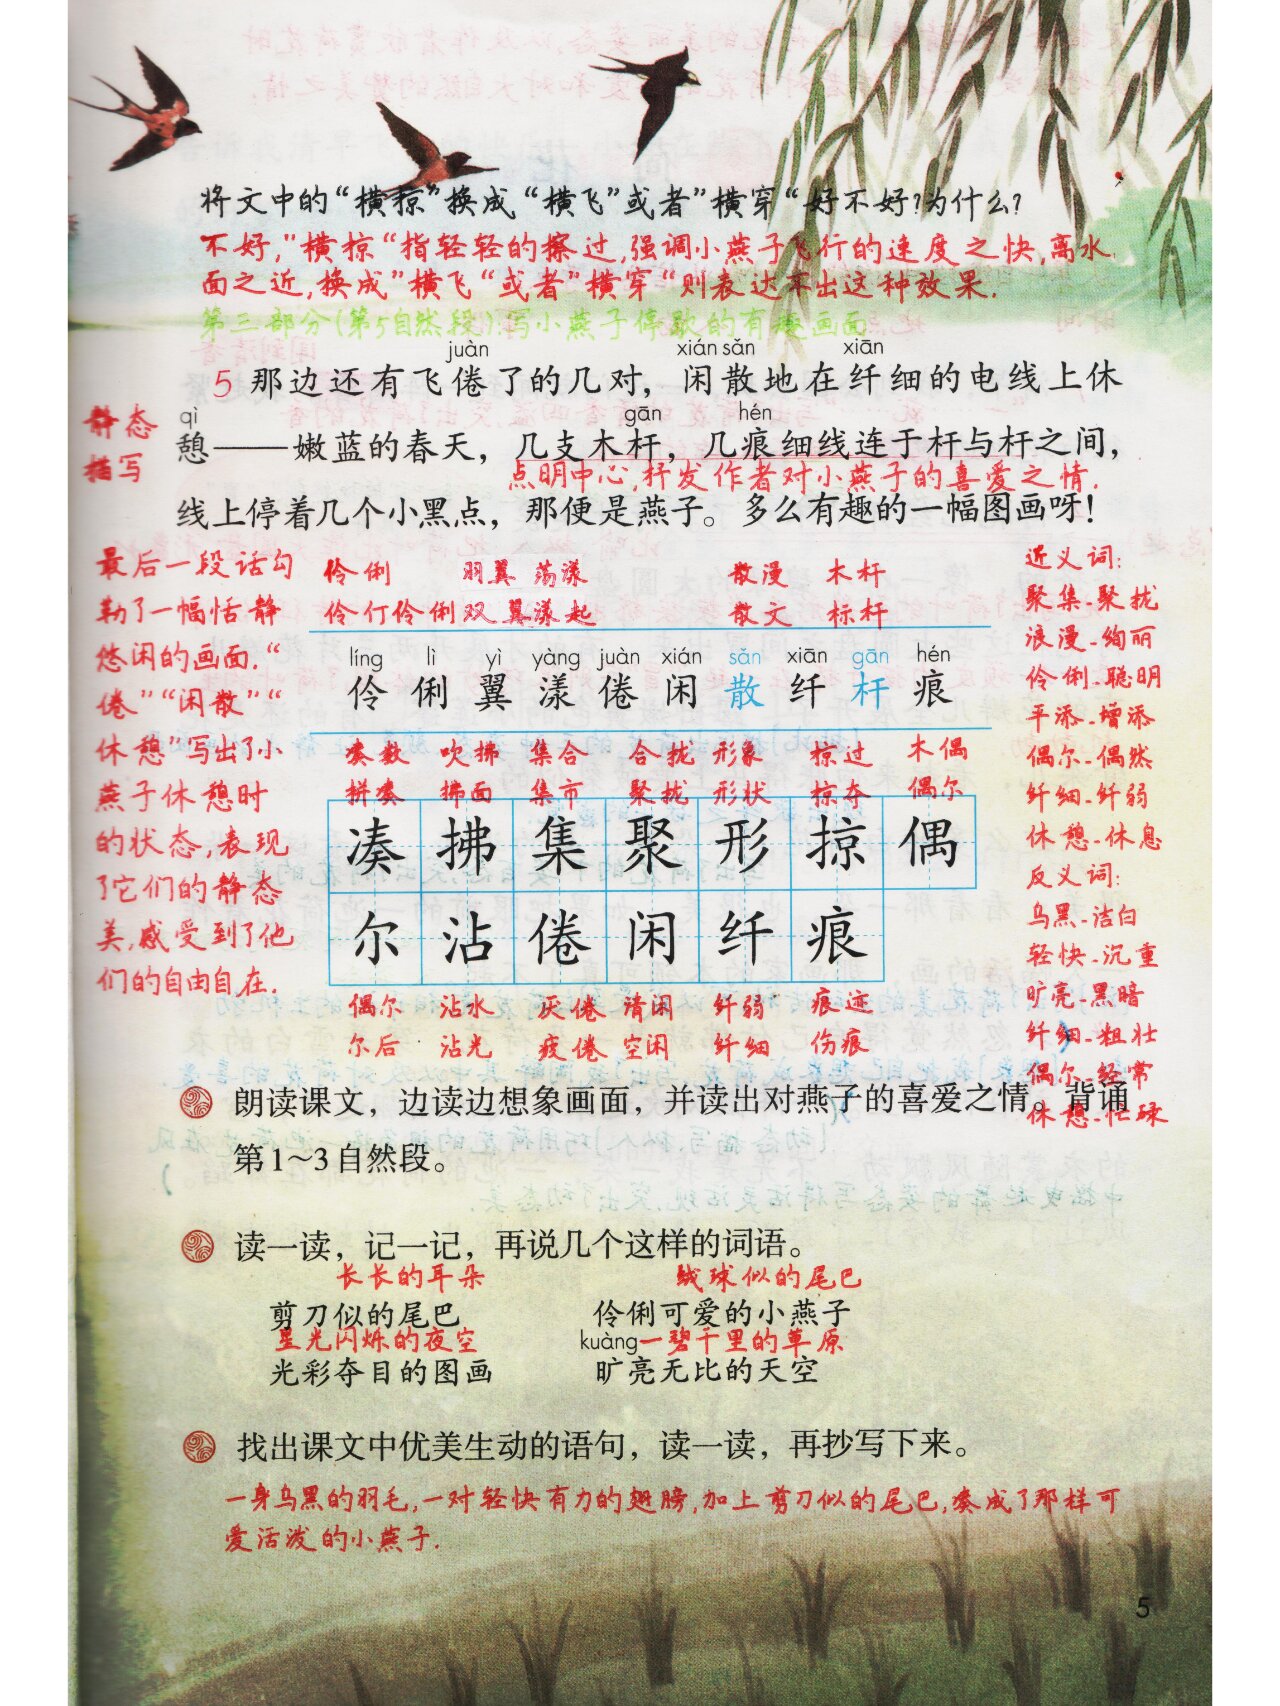 将文中的“横掠”换成“横飞”或者”横穿“好不好?为什么?
不好,”横掠“指轻轻的擦过,强调小燕子飞行的速度之快,离水
面之近,换成”横飞“或者”横穿“则表达不出这种效果.
第三部分(第5自然段):写小燕子停歇的有趣画面
juàn xián sǎn xiān
5 那边还有飞倦了的几对，闲散地在纤细的电线上休
qì gān hén
憩——嫩蓝的春天，几支木杆，几痕细线连于杆与杆之间，
点明中心,抒发作者对小燕子的喜爱之情.
线上停着几个小黑点，那便是燕子。多么有趣的一幅图画呀！
静态
描写
最后一段话勾
勒了一幅恬静
悠闲的画面.“
倦”“闲散”“
休憩”写出了小
燕子休憩时
的状态,表现
了它们的静态
美,感受到了他
们的自由自在.
伶俐 羽翼 荡漾 散漫 木杆
伶仃伶俐双翼漾起 散文 标杆
líng lì yì yàng juàn xián sǎn xiān gān hén
伶 俐 翼 漾 倦 闲 散 纤 杆 痕
凑数 吹拂 集合 合拢 形象 掠过 木偶
拼凑 拂面 集市 聚拢 形状 掠夺 偶尔
凑 拂 集 聚 形 掠 偶
尔 沾 倦 闲 纤 痕
偶尔 沾水 厌倦 清闲 纤弱 痕迹
尔后 沾光 疲倦 空闲 纤细 伤痕
近义词:
聚集-聚拢
浪漫-绚丽
伶俐-聪明
平添-增添
偶尔-偶然
纤细-纤弱
休憩-休息
反义词:
乌黑-洁白
轻快-沉重
旷亮-黑暗
纤细-粗壮
偶尔-经常
休憩-忙碌
朗读课文，边读边想象画面，并读出对燕子的喜爱之情。背诵
第1～3自然段。
读一读，记一记，再说几个这样的词语。
长长的耳朵 绒球似的尾巴
剪刀似的尾巴 伶俐可爱的小燕子
星光闪烁的夜空 kuàng 一碧千里的草原
光彩夺目的图画 旷亮无比的天空
找出课文中优美生动的语句，读一读，再抄写下来。
一身乌黑的羽毛,一对轻快有力的翅膀,加上剪刀似的尾巴,凑成了那样可
爱活泼的小燕子.
5